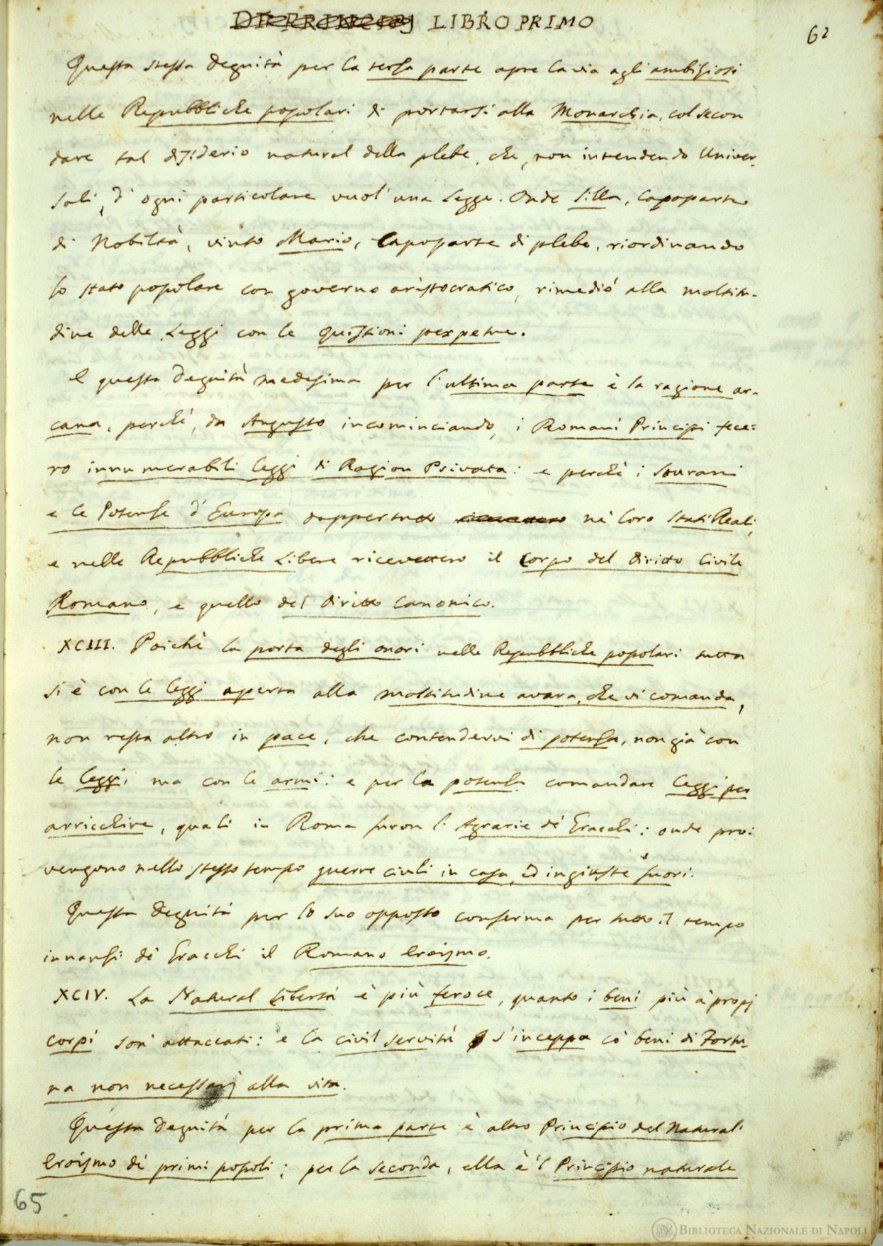 DE' PRINCIPJ LIBRO PRIMO
62
Questa stessa degnità per la terza parte apre la via agli ambiziosi
nelle Repubbliche popolari di portarsi alla Monarchia, col secon
dare tal disiderio natural della plebe, che, non intendendo Univer-
sali, d' ogni particolare vuol' una Legge. Onde Silla, Capoparte
di Nobiltà, vinto Mario, Capoparte di plebe, riordinando
lo stato popolare con governo aristocratico, rimediò alla moltitu-
dine delle Leggi con le quistioni perpetue.
E questa degnità medesima per l'ultima parte è la ragione ar-
cana, perchè, da Augusto incominciando, i Romani Principi fece-
ro innumerabili leggi di Ragion Privata: e perchè i Sovrani
e le Potenze d' Europa dappertutto ne' loro Stati Reali,
e nelle Repubbliche Libere ricevettero il Corpo del Diritto Civile
Romano, e quello del Diritto Canonico.
XCIII. Poichè la porta degli onori nelle Repubbliche popolari tutta
si è con le leggi aperta alla moltitudine avara, che vi comanda,
non resta altro in pace, che contendervi di potenza, non già con
le leggi, ma con le armi: e per la potenza comandare leggi per
arricchire, quali in Roma furon l' Agrarie de' Gracchi: onde pro-
vengono nello stesso tempo guerre civili in casa, ed ingiuste fuori.
Questa degnità per lo suo opposto conferma per tutto il tempo
innanzi de' Gracchi il Romano Eroismo.
XCIV. La Natural Libertà è più feroce, quanto i beni più a' propj
corpi son' attaccati: e la civil servitù s'inceppa co' beni di Fortu-
na non necessarj alla vita.
Questa degnità per la prima parte è altro Principio del Natural'
Eroismo de' primi popoli; per la seconda, ella è 'l Principio naturale
65
BIBLIOTECA NAZIONALE DI NAPOLI